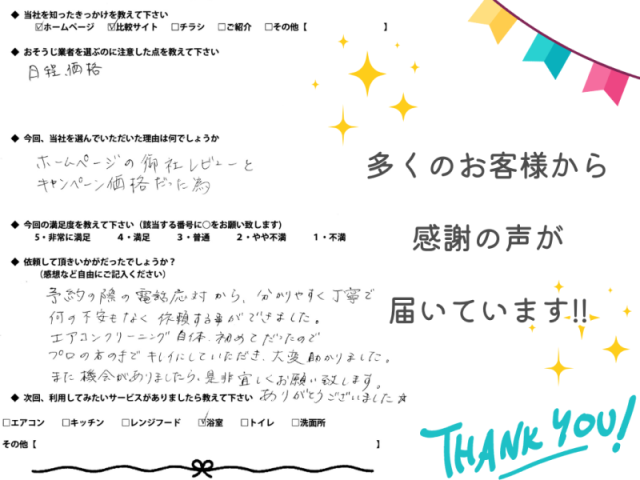 ◆ 当社を知ったきっかけを教えて下さい
☑ホームページ ☑比較サイト □チラシ □ご紹介 □その他【 】
◆ おそうじ業者を選ぶのに注意した点を教えて下さい
日程、価格
◆ 今回、当社を選んでいただいた理由は何でしょうか
ホームページの御社レビューと
キャンペーン価格だった為
◆ 今回の満足度を教えて下さい（該当する番号に○をお願い致します）
5・非常に満足 4・満足 3・普通 2・やや不満 1・不満
◆ 依頼して頂きいかがだったでしょうか？
（感想など自由にご記入ください）
予約の際の電話応対から、分かりやすく丁寧で
何の不安もなく依頼する事ができました。
エアコンクリーニング自体、初めてだったので
プロの方の手でキレイにしていただき、大変助かりました。
また機会がありましたら、是非宜しくお願い致します。
◆ 次回、利用してみたいサービスがありましたら教えて下さい ありがとうございました☆
□エアコン □キッチン □レンジフード ☑浴室 □トイレ □洗面所
その他【 】
多くのお客様から
感謝の声が
届いています!!
THANK YOU!